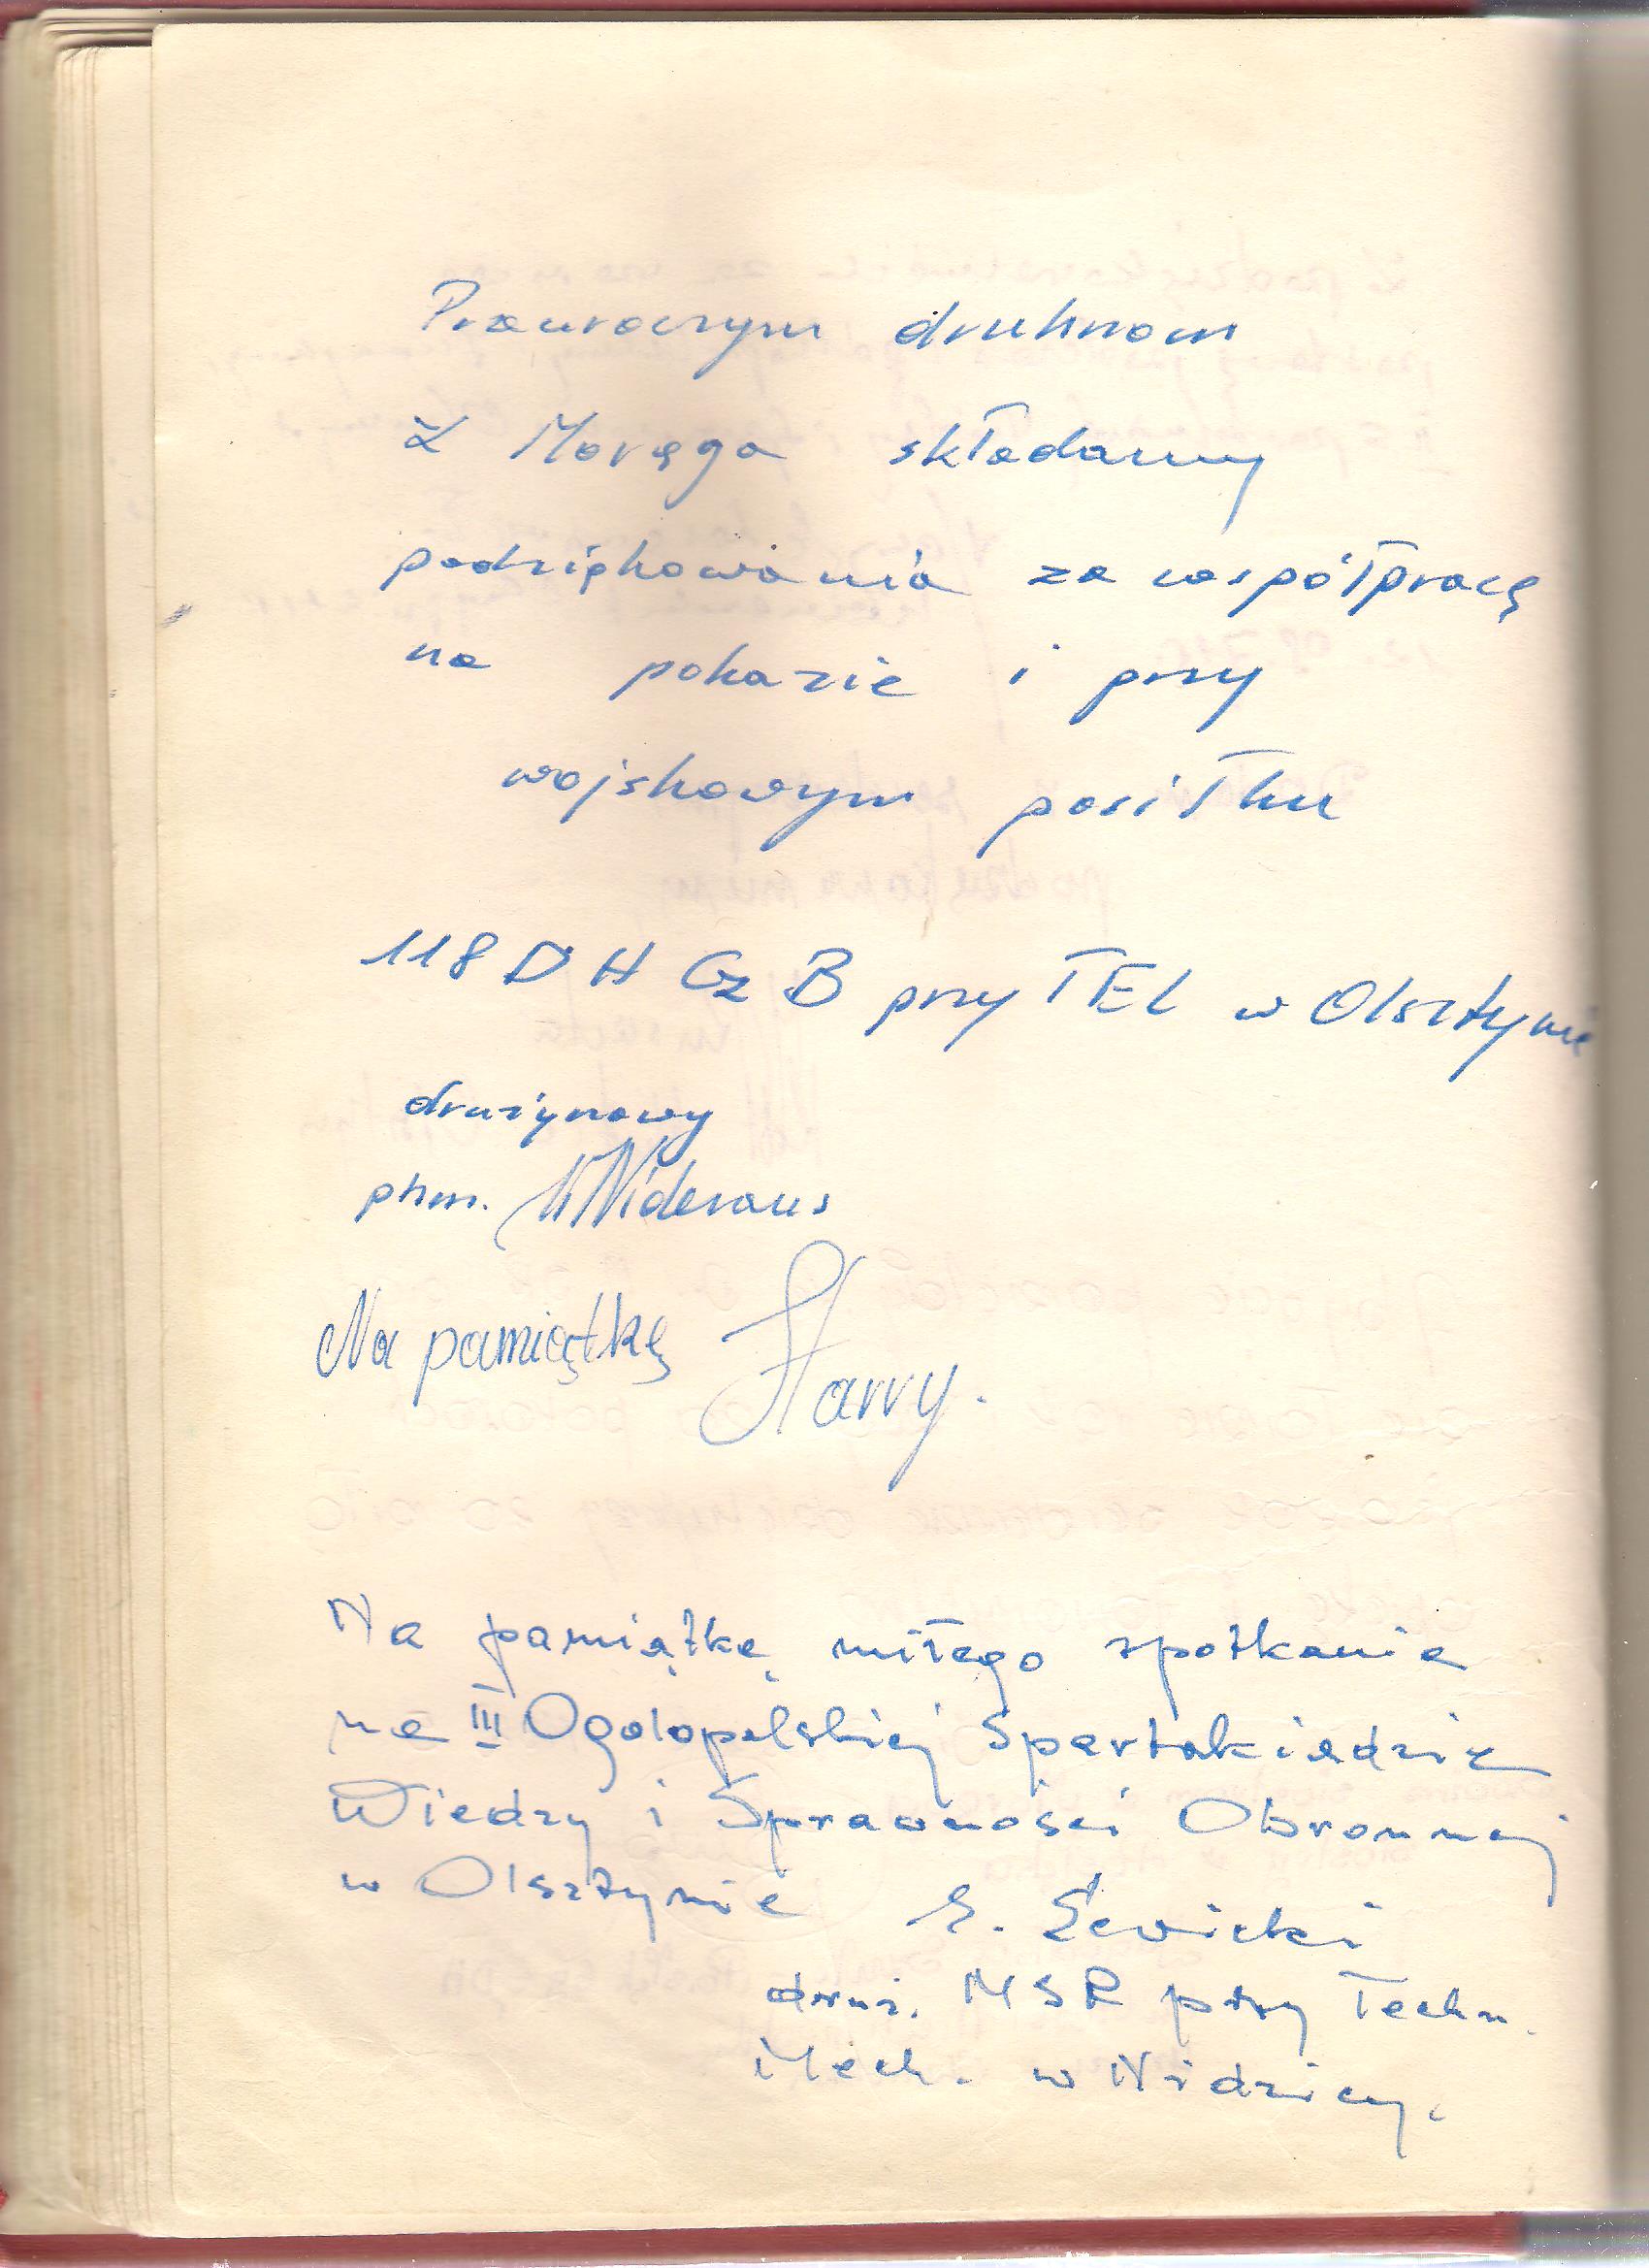 Przeuroczym druhnom
z Morąga składamy
podziękowania za współpracę
na pokazie i przy
wojskowym posiłku
118 DH Cz B przy TEL w Olsztynie
drużynowy
phm.
Na pamiątkę
Na pamiątkę miłego spotkania
na III Ogolopolskiej Spartakiadzie
Wiedzy i Sprawności Obronnej
w Olsztynie
druż. MSR przy Techn.
Mech. w Nidzicy.